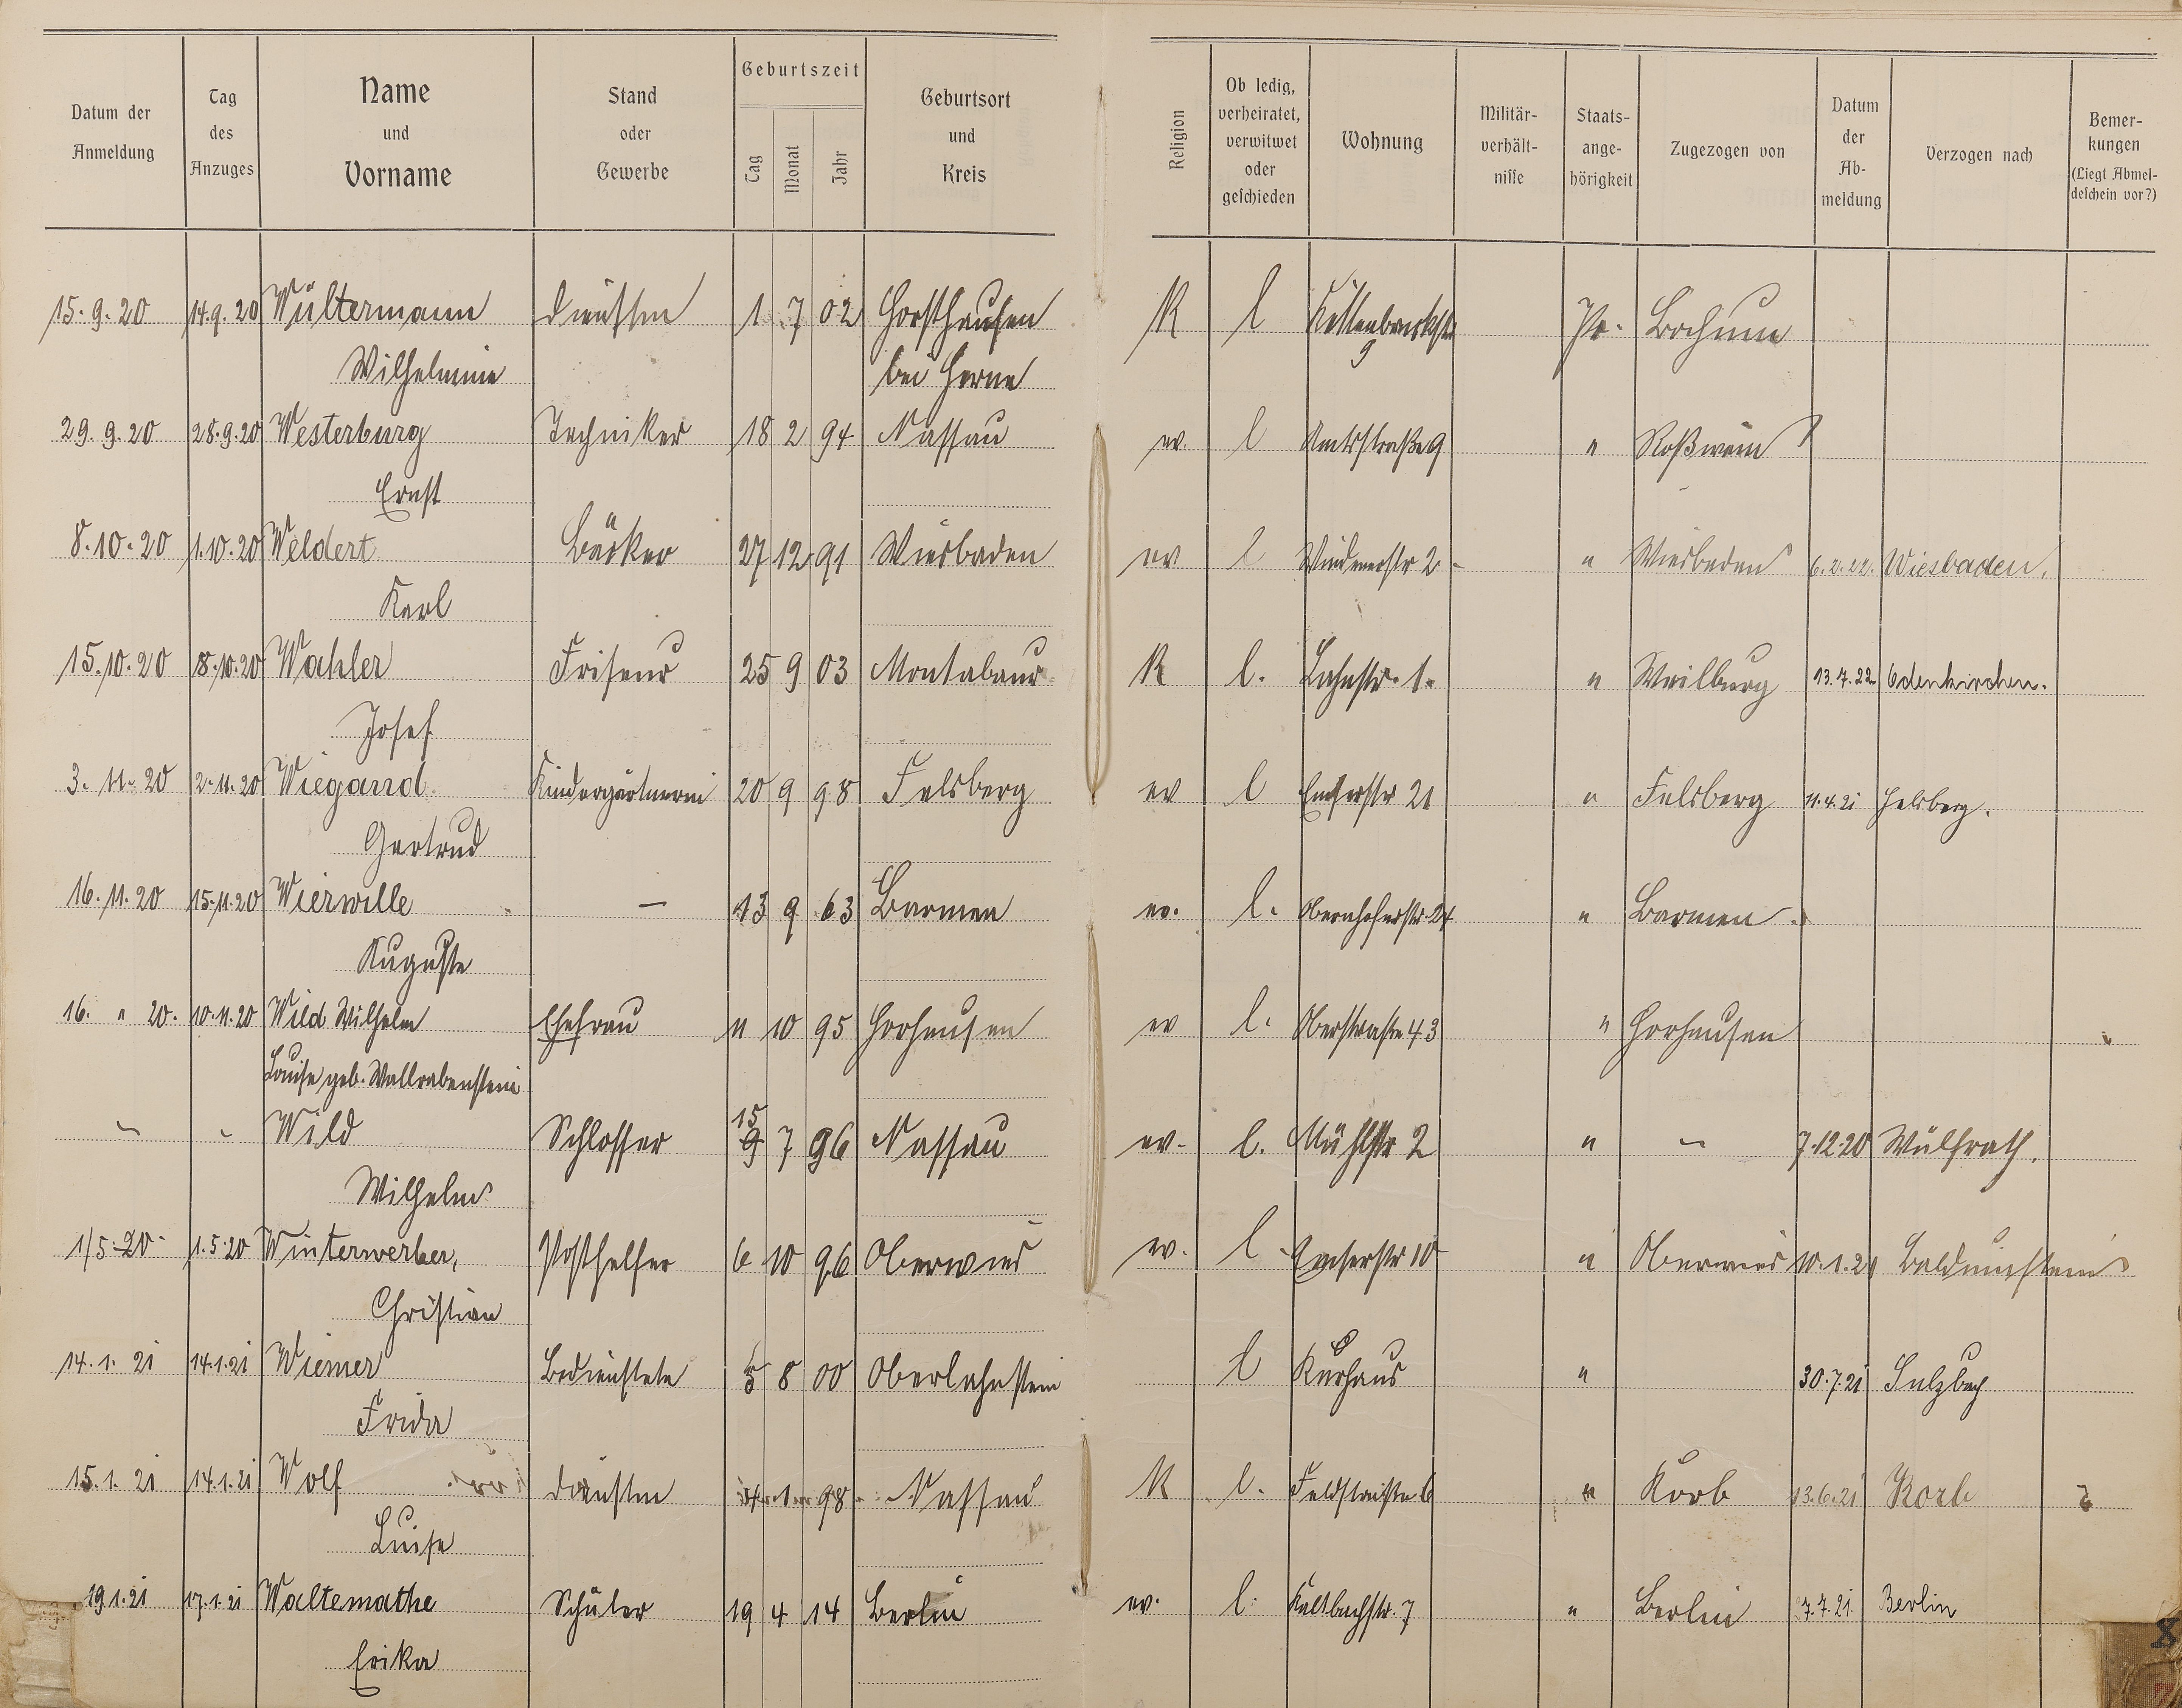 Datum der Anmeldung
Tag des Anzuges
Name und Vorname
Stand oder Gewerbe
Geburtszeit
Tag Monat Jahr
Geburtsort und Kreis
Religion
Ob ledig, verheiratet, verwitwet oder geschieden
Wohnung
Militär-verhält-nisse
Staats-ange-hörigkeit
Zugezogen von
Datum der Ab-meldung
Verzogen nach
Bemer-kungen (Liegt Abmel-deschein vor?)
15.9.20 14.9.20 Wültermann 1 7 02 Horsthausen K l 9 Pr. Bochum
Wilhelmine bei Herne
29.9.20 28.9.20 Westerburg Techniker 18 2 94 Nassau ev l Amtsstraße 9 " Roßwein
Ernst
8.10.20 1.10.20 Weldert Bäcker 27 12 91 Wiesbaden ev l 2 " Wiesbaden 6.2.22. Wiesbaden.
Karl
15.10.20 8.10.20 Wahler Friseur 25 9 03 Montabaur K l. Lahnstr. 1. " Weilburg 13.4.22 Odenkirchen.
Josef
3.11.20 2.11.20 Wiegand Kindergärtnerin 20 9 98 Felsberg ev l Emserstr 21 " Felsberg 11.4.21 Felsberg.
Gertrud
16.11.20 15.11.20 Wierwille — 13 9 63 Barmen ev. l. Obernhoferstr. 24 " Barmen
Auguste
16. " 20. 10.11.20 Wild Wilhelm Ehefrau 11 10 95 Horhausen ev l. Oberstraße 43 " Horhausen
Louise geb. Wallrabenstein
" " Wild Schlosser 15 9 7 96 Nassau ev. l. Mühlstr 2 " " 7.12.20 Wülfrath.
Wilhelm
1/5.20 1.5.20 Winterwerber, Posthelfer 6 10 96 Oberwies ev. l Emserstr 10 " Oberwies 10.1.21 Balduinstein
Christian
14.1.21 14.1.21 Wiemer Bedienstete 5 8 00 Oberlahnstein l Kurhaus " 30.7.21 Sulzbach
Frida
15.1.21 14.1.21 Wolf 1 98 Nassau K l. Feldstraße 6 " Korb 13.6.21 Korb
Luise
19.1.21 17.1.21 Waltemathe Schüler 19 4 14 Berlin ev. l. Kaltbachstr. 7 " Berlin 7.7.21 Berlin
Erika